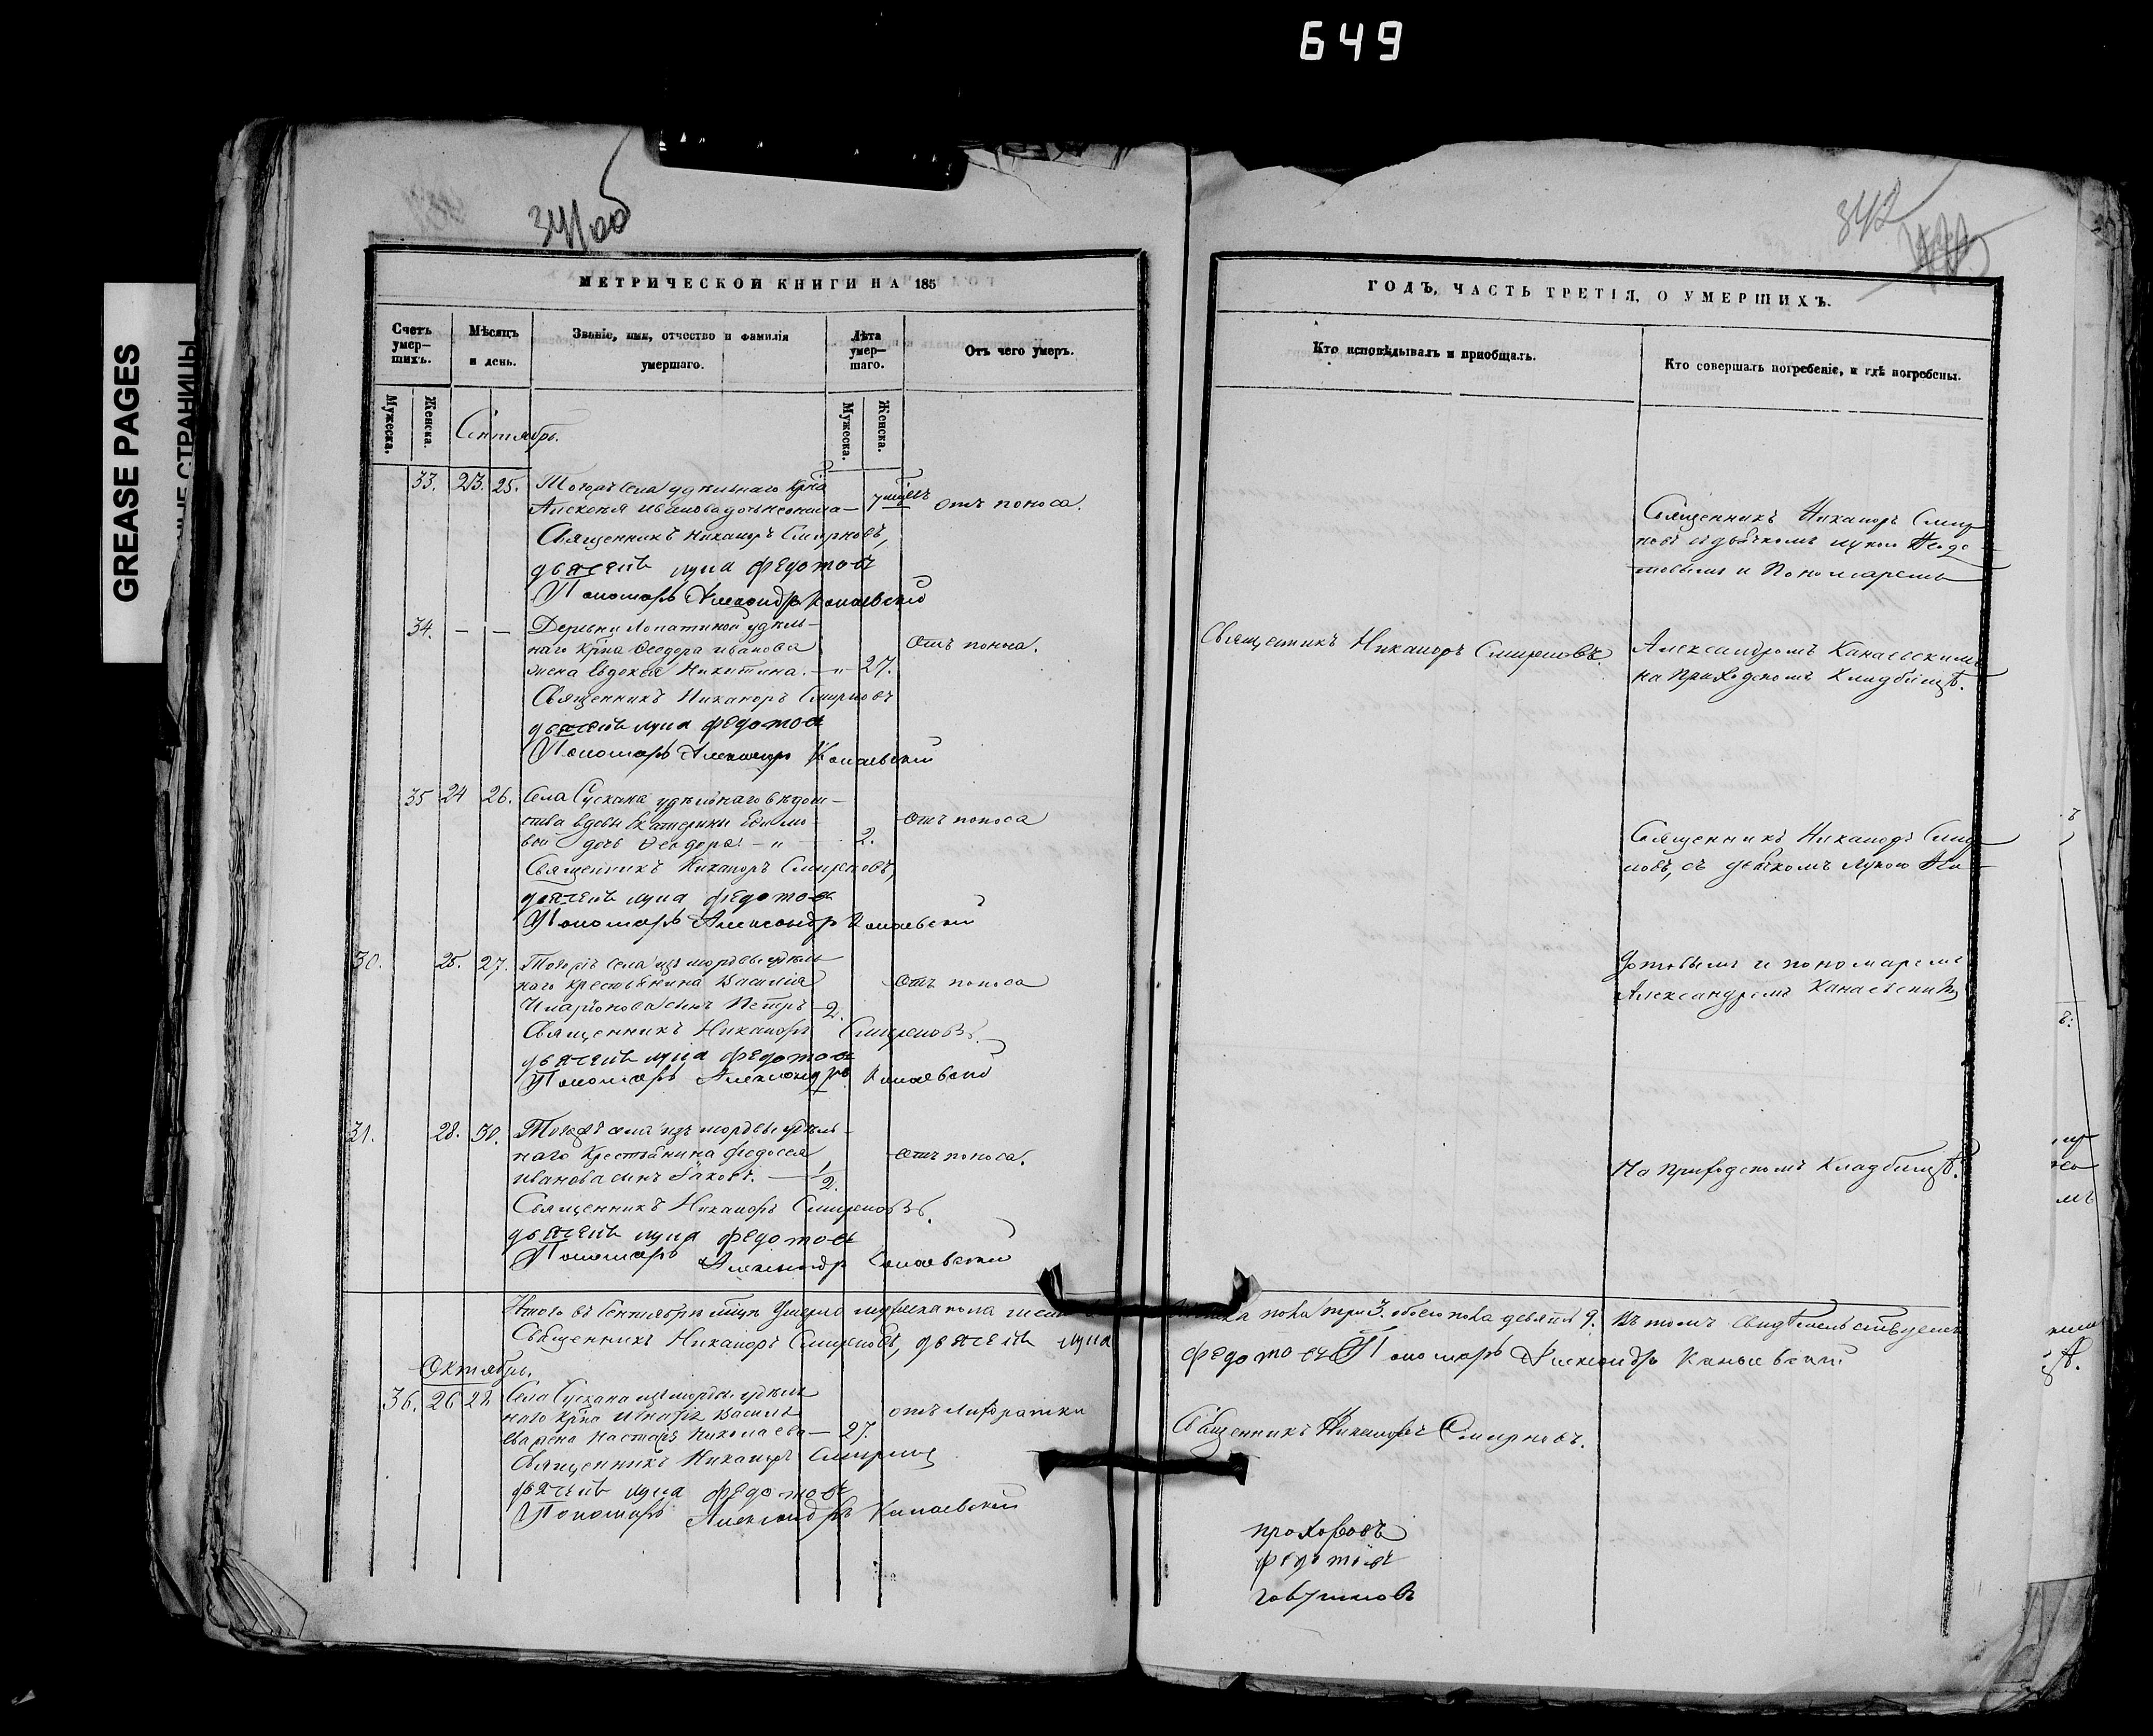 649
GREASE PAGES
341 об
342
МЕТРИЧЕСКОЙ КНИГИ НА 185
ГОДЪ, ЧАСТЬ ТРЕТІЯ, О УМЕРШИХЪ.
Счетъ умер-
шихъ.
Мѣсяцъ
и день.
Званіе, имя, отчество и фамилія
умершаго.
Лѣта
умер-
шаго.
Отъ чего умеръ.
Кто исповѣдывалъ и пріобщалъ.
Кто совершалъ погребеніе, и гдѣ погребены.
Мужеска.
Женска.
Мужеска.
Женска.
Сентябрь.
33. 23. 25. Тогожъ села удѣльнаго крна
Отъ поноса.
Священникъ Никаноръ Смирновъ,
дьячекъ лука федотовъ
Пономарь Александръ Канаевский
34. — — Деревни Лопатиной удѣль-
наго крна Ѳеодора иванова
жена Евдокея Никитина. — " 27.
Отъ поноса.
Священникъ Никаноръ Смирновъ
дьячекъ лука федотовъ
Пономарь Александръ Канаевский
35 24 26. Села Сускана удѣльнаго вѣдом-
ства вдовы Екатерины
вой дочь Ѳеодора. — " 2.
Отъ поноса
Священникъ Никаноръ Смирновъ,
дьячекъ лука федотовъ
Пономарь Александръ Канаевский
30. 25. 27. Тогожъ села изъ мордвы удѣль-
наго крестьянина Василія
Иларіонова сынъ Петръ — 2.
Отъ поноса
Священникъ Никаноръ Смирновъ.
дьячекъ лука федотовъ
Пономарь Александръ Канаевский
31. 28. 30. Тогожъ села изъ мордвы удѣль-
наго Крестьянина федосея
иванова сынъ Яковъ. — 1/2.
Отъ поноса.
Священникъ Никаноръ Смирновъ.
дьячекъ лука федотовъ
Пономарь Александръ Канаевский
Священникъ Никаноръ Смир-
новъ съ дьячкомъ Лукою Ѳедо-
товымъ и Пономаремъ
Священникъ Никаноръ Смирновъ.
Александромъ Канаевскимъ
на Приходскомъ Кладбищѣ.
Священникъ Никаноръ Смир-
новъ, съ дьячкомъ Лукою Ѳе-
дотовымъ и пономаремъ
Александромъ Канаевскимъ
На Приходскомъ Кладбищѣ.
Итого въ Сентябрѣ мцѣ Умерло мужеска пола пола три 3. обоего пола девять 9. Въ томъ Свидѣтельствуемъ
Священникъ Никаноръ Смирновъ, дьячекъ лука федотовъ Пономарь Александръ Канаевский
Октябрь.
36. 26 28 Села Сускана изъ мордвы удѣль-
наго крна Игнатія Василь
ева жена Настасья Николаева — 27.
отъ лихорадки
Священникъ Никаноръ Смирновъ.
Священникъ Никаноръ Смирновъ
дьячекъ лука федотовъ
Пономарь Александръ Канаевский
прохоровъ
федотовъ